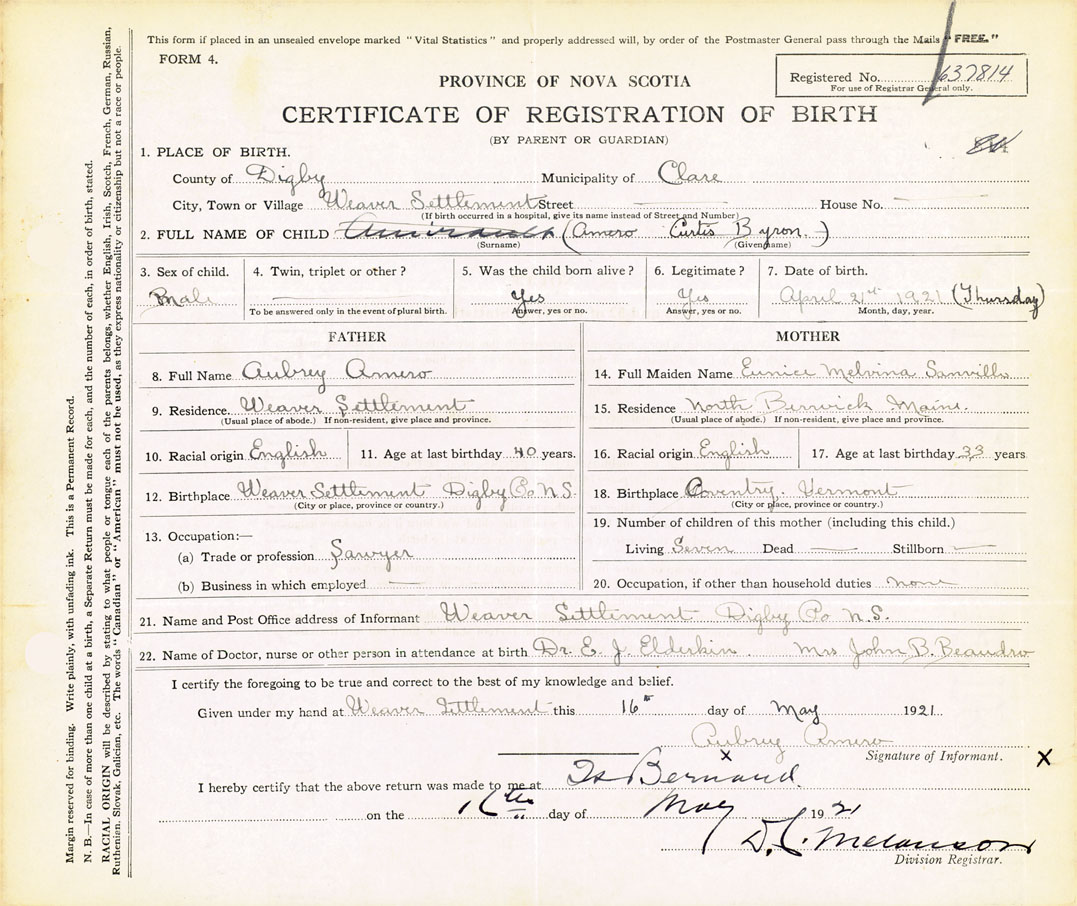 This form if placed in an unsealed envelope marked "Vital Statistics" and properly addressed will, by order of the Postmaster General pass through the Mails "FREE."
FORM 4.
Registered No. 637814
For use of Registrar General only.
PROVINCE OF NOVA SCOTIA
CERTIFICATE OF REGISTRATION OF BIRTH
(BY PARENT OR GUARDIAN)
1. PLACE OF BIRTH.
County of Digby Municipality of Clare
City, Town or Village Weaver Settlement Street House No.
(If birth occurred in a hospital, give its name instead of Street and Number)
2. FULL NAME OF CHILD Amirault (Amero Curtis Byron.)
(Surname) (Given name)
3. Sex of child. 4. Twin, triplet or other? 5. Was the child born alive? 6. Legitimate? 7. Date of birth.
Male Yes Yes April 21st 1921 (Thursday)
To be answered only in the event of plural birth. Answer, yes or no. Answer, yes or no. Month, day, year.
FATHER
8. Full Name Aubrey Amero
9. Residence. Weaver Settlement
(Usual place of abode.) If non-resident, give place and province.
10. Racial origin English 11. Age at last birthday 40 years.
12. Birthplace Weaver Settlement Digby Co N.S.
(City or place, province or country.)
13. Occupation:—
(a) Trade or profession Sawyer
(b) Business in which employed —
MOTHER
14. Full Maiden Name Eunice Melvina Sanville
15. Residence North Berwick Maine.
(Usual place of abode.) If non-resident, give place and province.
16. Racial origin English 17. Age at last birthday 33 years
18. Birthplace Coventry. Vermont
(City or place, province or country.)
19. Number of children of this mother (including this child.)
Living Seven Dead — Stillborn —
20. Occupation, if other than household duties none
21. Name and Post Office address of Informant Weaver Settlement Digby Co N.S.
22. Name of Doctor, nurse or other person in attendance at birth Dr. E. J. Elderkin. Mrs John B. Beaudro
I certify the foregoing to be true and correct to the best of my knowledge and belief.
Given under my hand at Weaver Settlement this 16th day of May 1921.
Aubrey Amero
Signature of Informant. X
X
I hereby certify that the above return was made to me at St Bernard
on the 16th day of May 1921
D. L. Melanson
Division Registrar.
Margin reserved for binding. Write plainly, with unfading ink. This is a Permanent Record.
N. B.—In case of more than one child at a birth, a Separate Return must be made for each, and the number of each, in order of birth, stated.
RACIAL ORIGIN will be described by stating to what people or tongue each of the parents belongs, whether English, Irish, Scotch, French, German, Russian,
Ruthenien. Slovak, Galician, etc. The words "Canadian" or "American" must not be used, as they express nationality or citizenship but not a race or people.